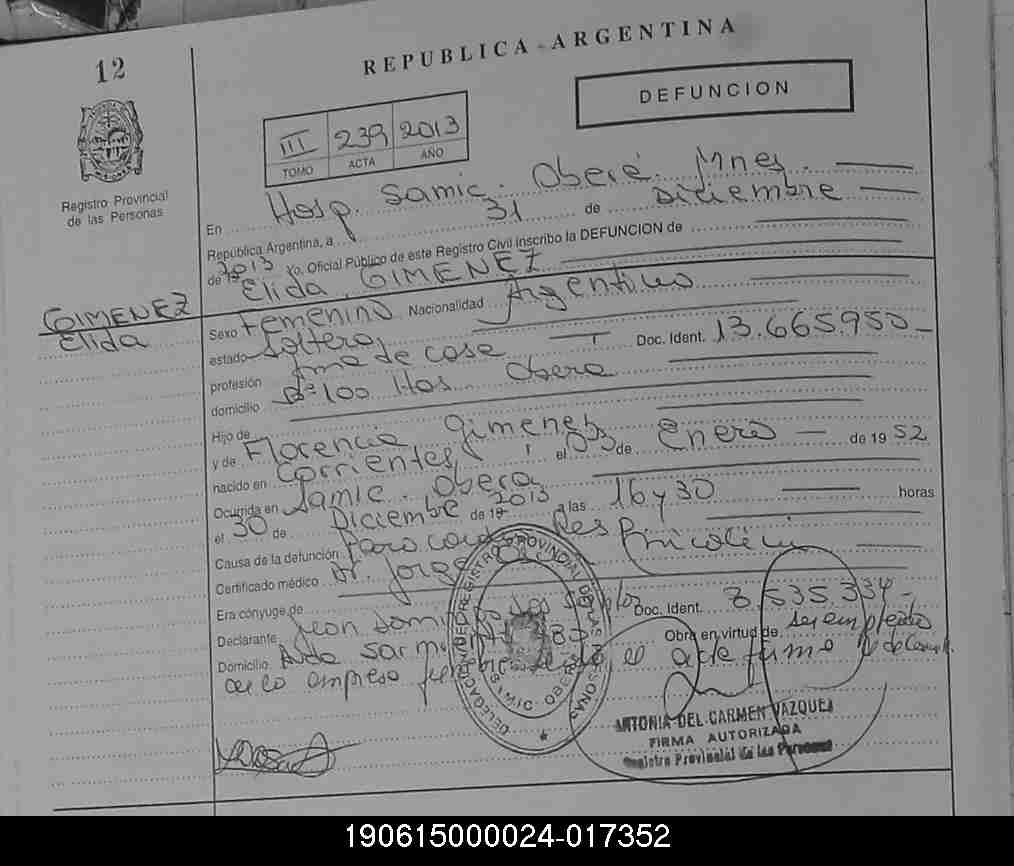 12
REPUBLICA ARGENTINA
DEFUNCION
III 239 2013
TOMO ACTA AÑO
Registro Provincial
de las Personas
En Hosp. Samic. Oberá. Mnes.
República Argentina, a 31 de Diciembre
de 19 2013 Yo. Oficial Público de este Registro Civil inscribo la DEFUNCION de
Elida GIMENEZ
GIMENEZ
Elida
Sexo Femenino Nacionalidad Argentina
estado Soltera Doc. Ident. 13.665.950
profesión Ama de casa
domicilio Bº 100 Has Obera
Hijo de
y de Florencia Gimenez
nacido en Corrientes el 03 de Enero de 19 52
Ocurrida en Samic. Obera
el 30 de Diciembre de 19 2013 a las 16 y 30 horas
Causa de la defunción paro
Certificado médico Dr. Jorge
Era cónyuge de
Declarante Doc. Ident. 8.535.334
Domicilio Avda Sarm Obra en virtud de ser empleado
de la empresa
DELEGACION DE REGISTRO PROVINCIAL DE LAS PERSONAS
OBERA
ANTONIA DEL CARMEN VAZQUEZ
FIRMA AUTORIZADA
Registro Provincial de las Personas
190615000024-017352